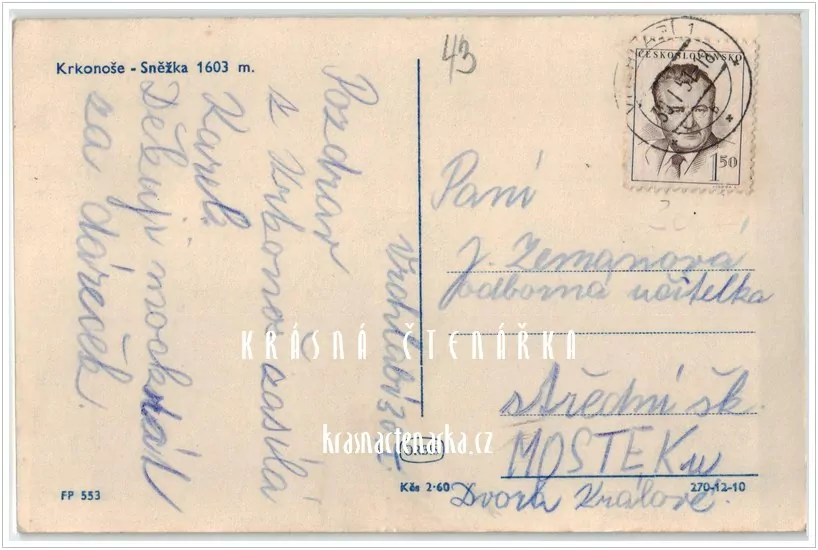 Krkonoše - Sněžka 1603 m.
43
ČESKOSLOVENSKO
1 50
Vrchlabí 30.
Pozdrav
z Krkonoš zasílá
Karel.
Děkuji mockrát
za dáreček.
Paní
J. Zemanová
odborná učitelka
střední šk.
MOSTEK u
Dvora Králové.
KRÁSNÁ ČTENÁŘKA
krasnactenarka.cz
ORBIS
FP 553
Kčs 2·60
270-12-10